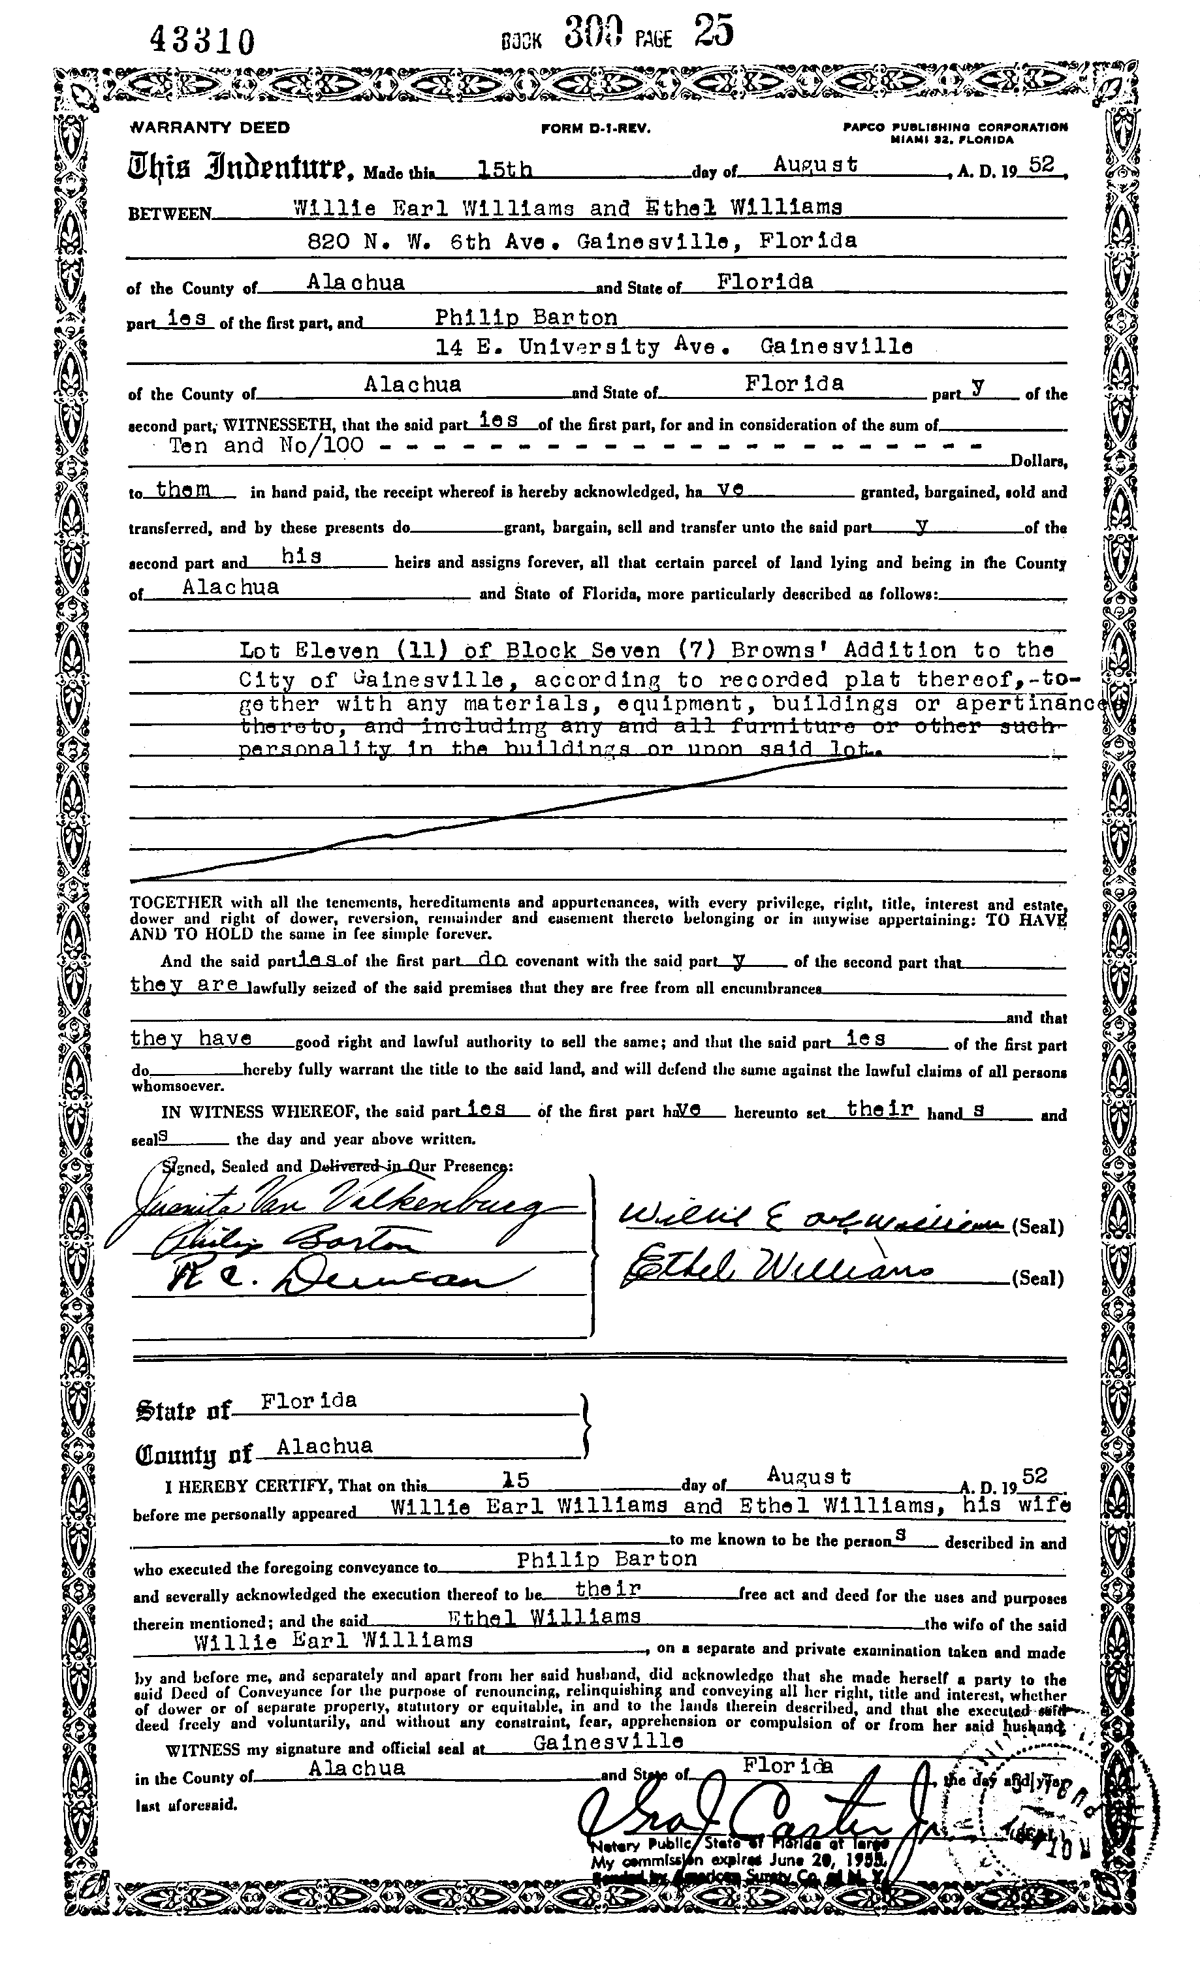 43310 BOOK 300 PAGE 25
WARRANTY DEED FORM D-1-REV. PAPCO PUBLISHING CORPORATION
MIAMI 32, FLORIDA
This Indenture, Made this 15th day of August, A. D. 19 52,
BETWEEN Willie Earl Williams and Ethel Williams
820 N. W. 6th Ave. Gainesville, Florida
of the County of Alachua and State of Florida
part ies of the first part, and Philip Barton
14 E. University Ave. Gainesville
of the County of Alachua and State of Florida part y of the
second part, WITNESSETH, that the said part ies of the first part, for and in consideration of the sum of
Ten and No/100 - - - - - - - - - - - - - - - - - - - - - -
Dollars,
to them in hand paid, the receipt whereof is hereby acknowledged, ha ve granted, bargained, sold and
transferred, and by these presents do grant, bargain, sell and transfer unto the said part y of the
second part and his heirs and assigns forever, all that certain parcel of land lying and being in the County
of Alachua and State of Florida, more particularly described as follows:
Lot Eleven (11) of Block Seven (7) Browns' Addition to the
City of Gainesville, according to recorded plat thereof,-to-
gether with any materials, equipment, buildings or apertinances
thereto, and including any and all furniture or other such
personality in the buildings or upon said lot.
TOGETHER with all the tenements, hereditaments and appurtenances, with every privilege, right, title, interest and estate,
dower and right of dower, reversion, remainder and easement thereto belonging or in anywise appertaining: TO HAVE
AND TO HOLD the same in fee simple forever.
And the said parties of the first part do covenant with the said part y of the second part that
they are lawfully seized of the said premises that they are free from all encumbrances
and that
they have good right and lawful authority to sell the same; and that the said part ies of the first part
do hereby fully warrant the title to the said land, and will defend the same against the lawful claims of all persons
whomsoever.
IN WITNESS WHEREOF, the said part ies of the first part have hereunto set their hand s and
seals the day and year above written.
Signed, Sealed and Delivered in Our Presence:
Juanita Van Valkenburg
Willie Earl Williams (Seal)
Philip Barton
R C. Duncan
Ethel Williams (Seal)
State of Florida
County of Alachua
I HEREBY CERTIFY, That on this 15 day of August A. D. 19 52
before me personally appeared Willie Earl Williams and Ethel Williams, his wife
to me known to be the persons described in and
who executed the foregoing conveyance to Philip Barton
and severally acknowledged the execution thereof to be their free act and deed for the uses and purposes
therein mentioned; and the said Ethel Williams the wife of the said
Willie Earl Williams, on a separate and private examination taken and made
by and before me, and separately and apart from her said husband, did acknowledge that she made herself a party to the
said Deed of Conveyance for the purpose of renouncing, relinquishing and conveying all her right, title and interest, whether
of dower or of separate property, statutory or equitable, in and to the lands therein described, and that she executed said
deed freely and voluntarily, and without any constraint, fear, apprehension or compulsion of or from her said husband.
WITNESS my signature and official seal at Gainesville
in the County of Alachua and State of Florida, the day and year
last aforesaid.
Ira J Carter Jr.
Notary Public, State of Florida at large
My commission expires June 20, 1955.
Bonded by American Surety Co. of N. Y.